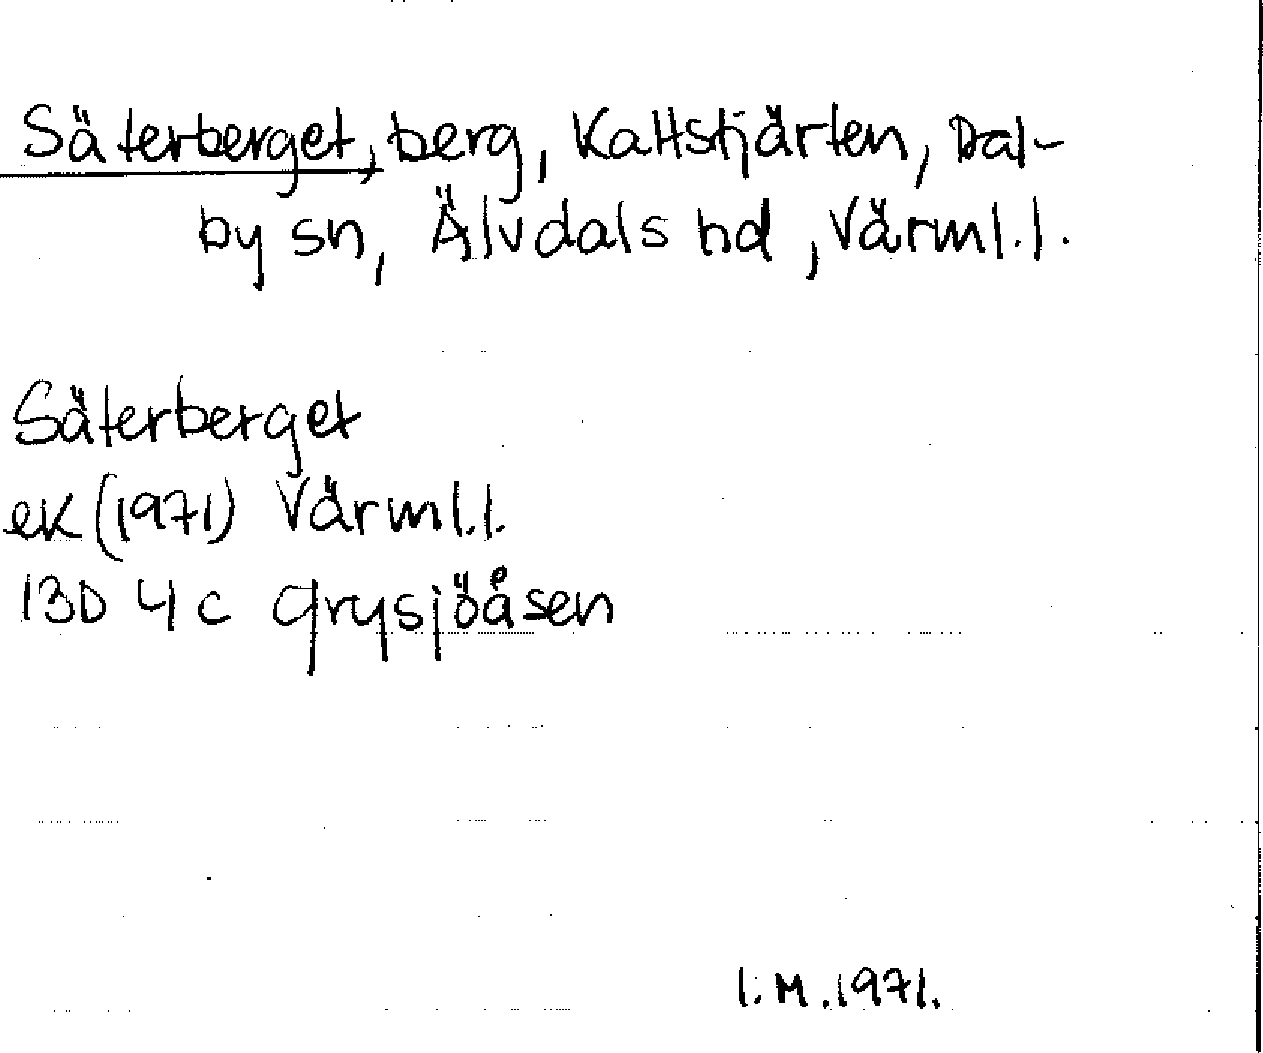 Säterberget, berg, Kattstjärten, Dal-
by sn, Älvdals hd, Värml.l.
Säterberget
ek (1971) Värml.l.
13D 4c Grysjöåsen
I.M.1971.